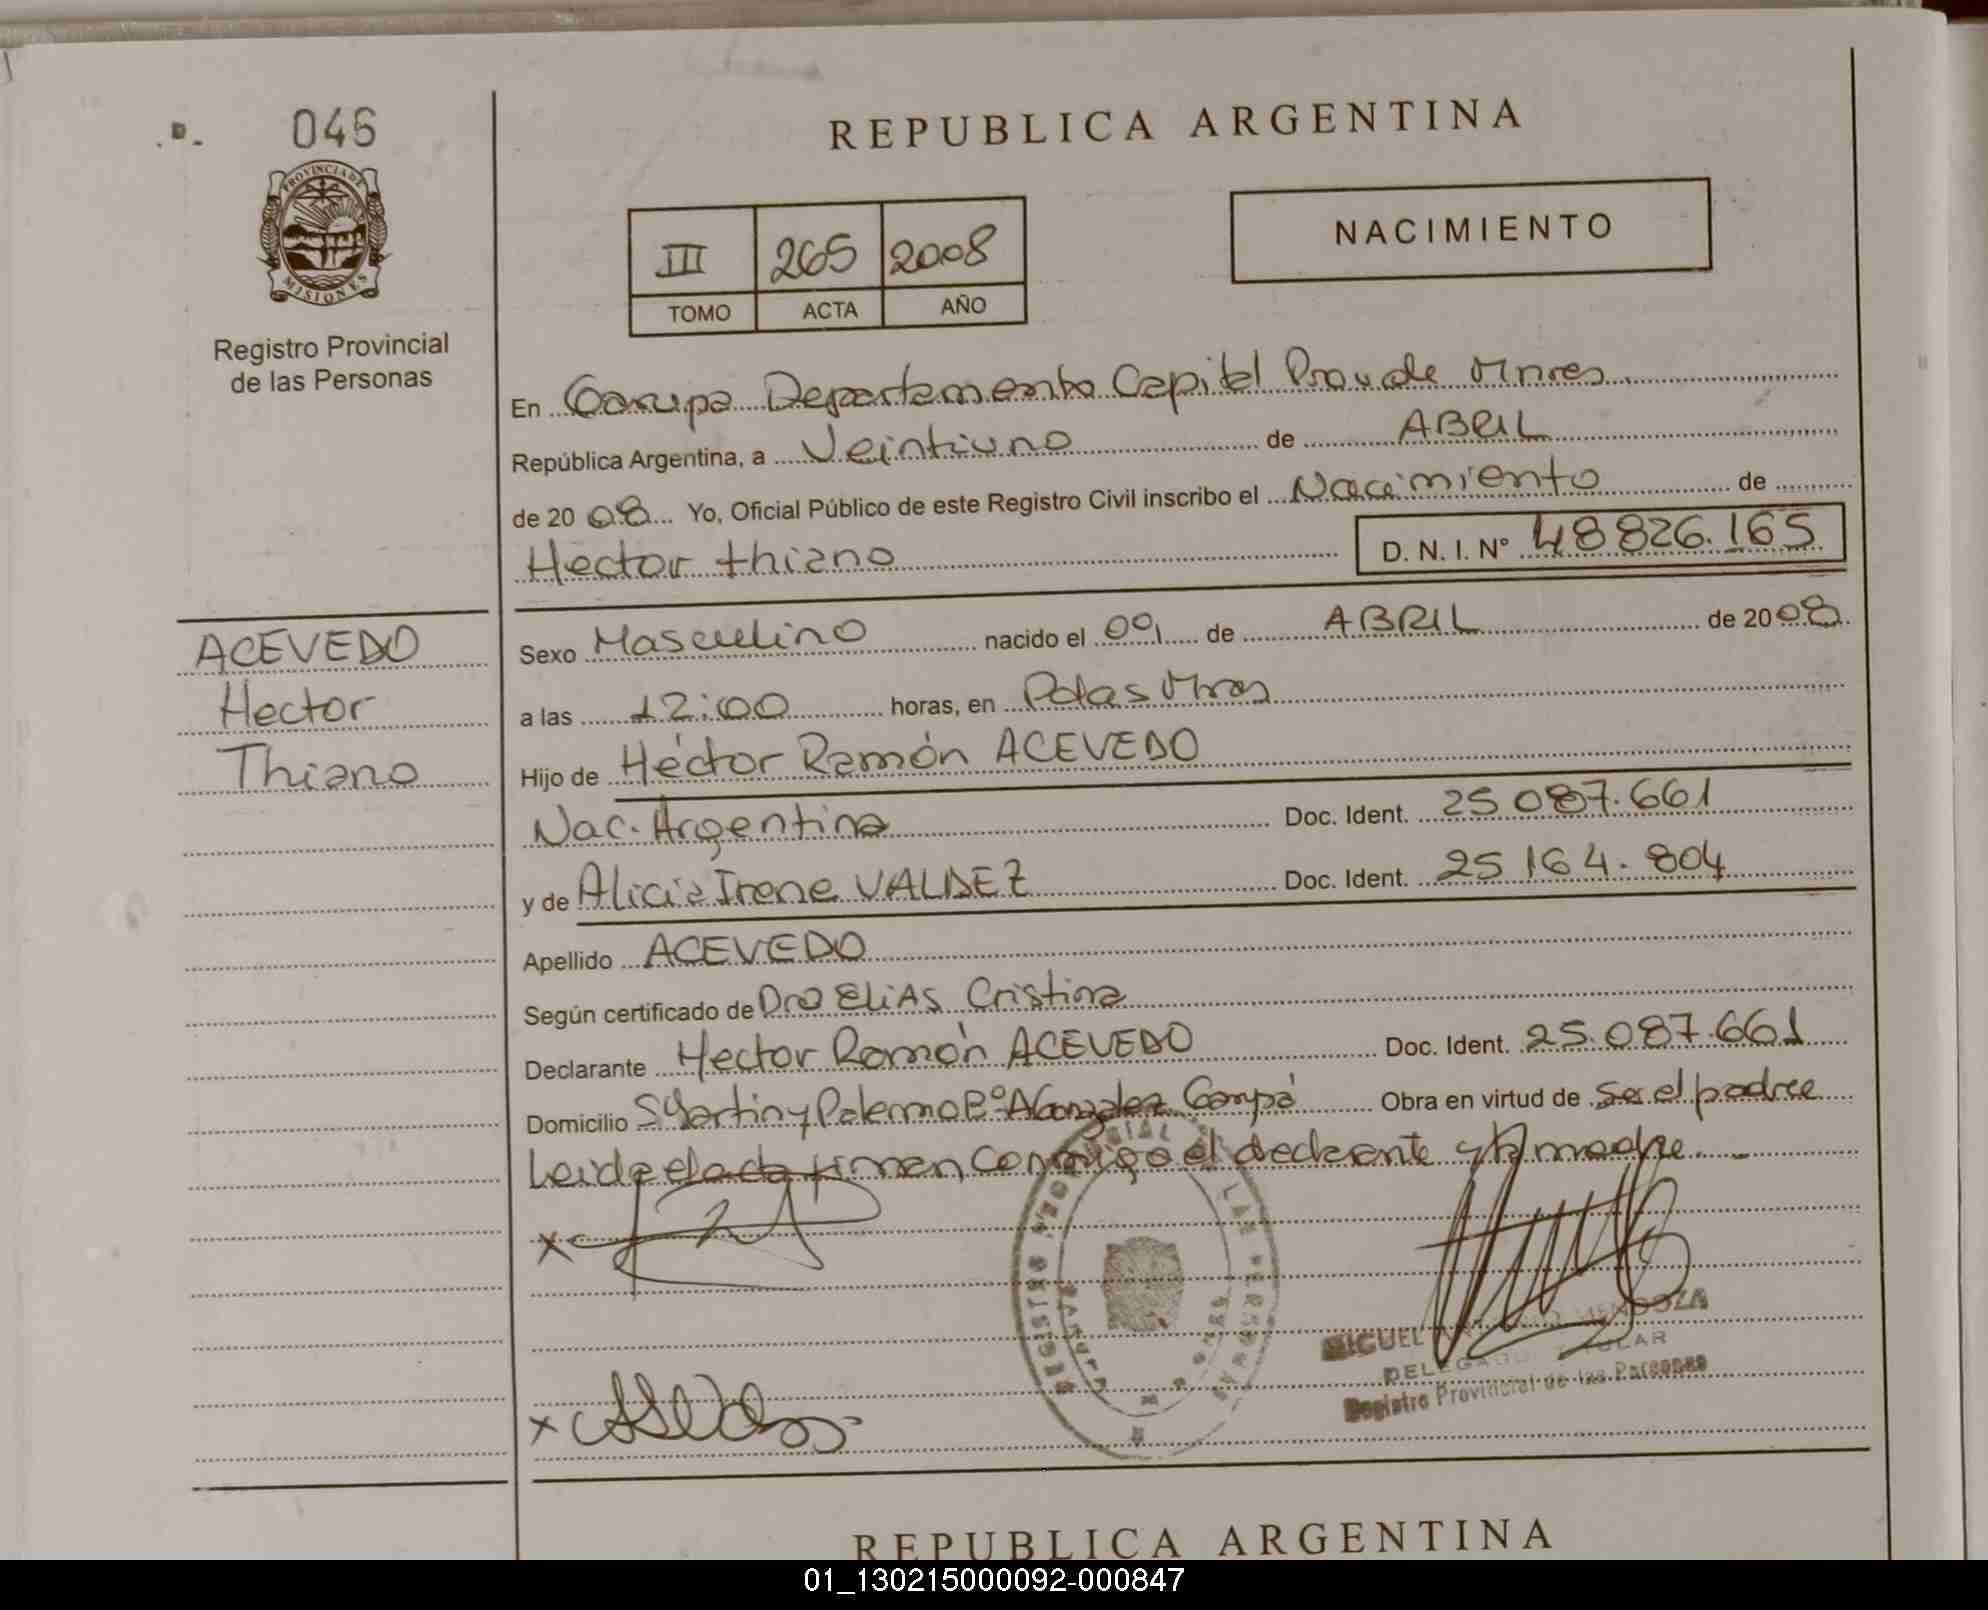 046
PROVINCIA DE
MISIONES
Registro Provincial
de las Personas
REPUBLICA ARGENTINA
III 265 2008
TOMO ACTA AÑO
NACIMIENTO
En Garupa Departamento Capital Prov de Mnes
República Argentina, a Veintiuno de ABRIL
de 2008 Yo, Oficial Público de este Registro Civil inscribo el Nacimiento de
Hector thiano D. N. I. Nº 48826.165
ACEVEDO
Hector
Thiano
Sexo Masculino nacido el 001 de ABRIL de 2008
a las 12:00 horas, en Pdas Mnes
Hijo de Héctor Ramón ACEVEDO
Nac. Argentina Doc. Ident. 25 087.661
y de Alicia Irene VALDEZ Doc. Ident. 25 164.804
Apellido ACEVEDO
Según certificado de Dra ELIAS Cristina
Declarante Hector Ramón ACEVEDO Doc. Ident. 25.087.661
Domicilio S Martin y Palermo Bº A Gonzalez Garupá Obra en virtud de ser el padre
Leida el acta firman conmigo el declarante y la madre.
x
x
MIGUEL MENDOZA
DELEGADO TITULAR
Registro Provincial de las Personas
REPUBLICA ARGENTINA
01_130215000092-000847